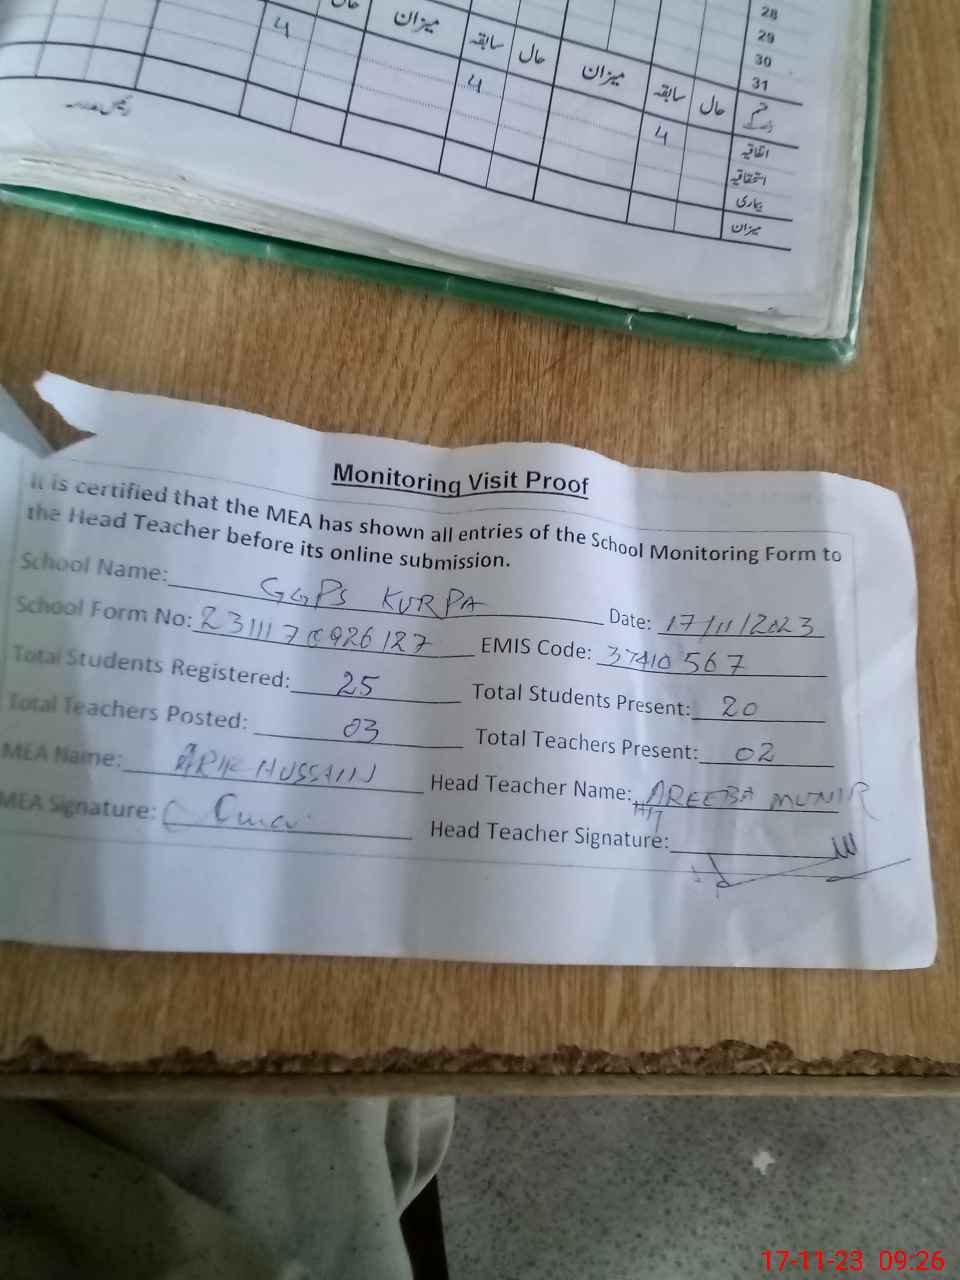 28
29
30
31
میزان سابقہ حال میزان سابقہ حال
4 4 4
اتفاقیہ
استحقاقیہ
بیماری
میزان
Monitoring Visit Proof
It is certified that the MEA has shown all entries of the School Monitoring Form to
the Head Teacher before its online submission.
School Name: GGPS KURPA Date: 17/11/2023
School Form No: 231117 0926127 EMIS Code: 37410567
Total Students Registered: 25 Total Students Present: 20
Total Teachers Posted: 03 Total Teachers Present: 02
MEA Name: HUSSAIN Head Teacher Name: AREEBA MUNIR
MEA Signature: Head Teacher Signature:
17-11-23 09:26